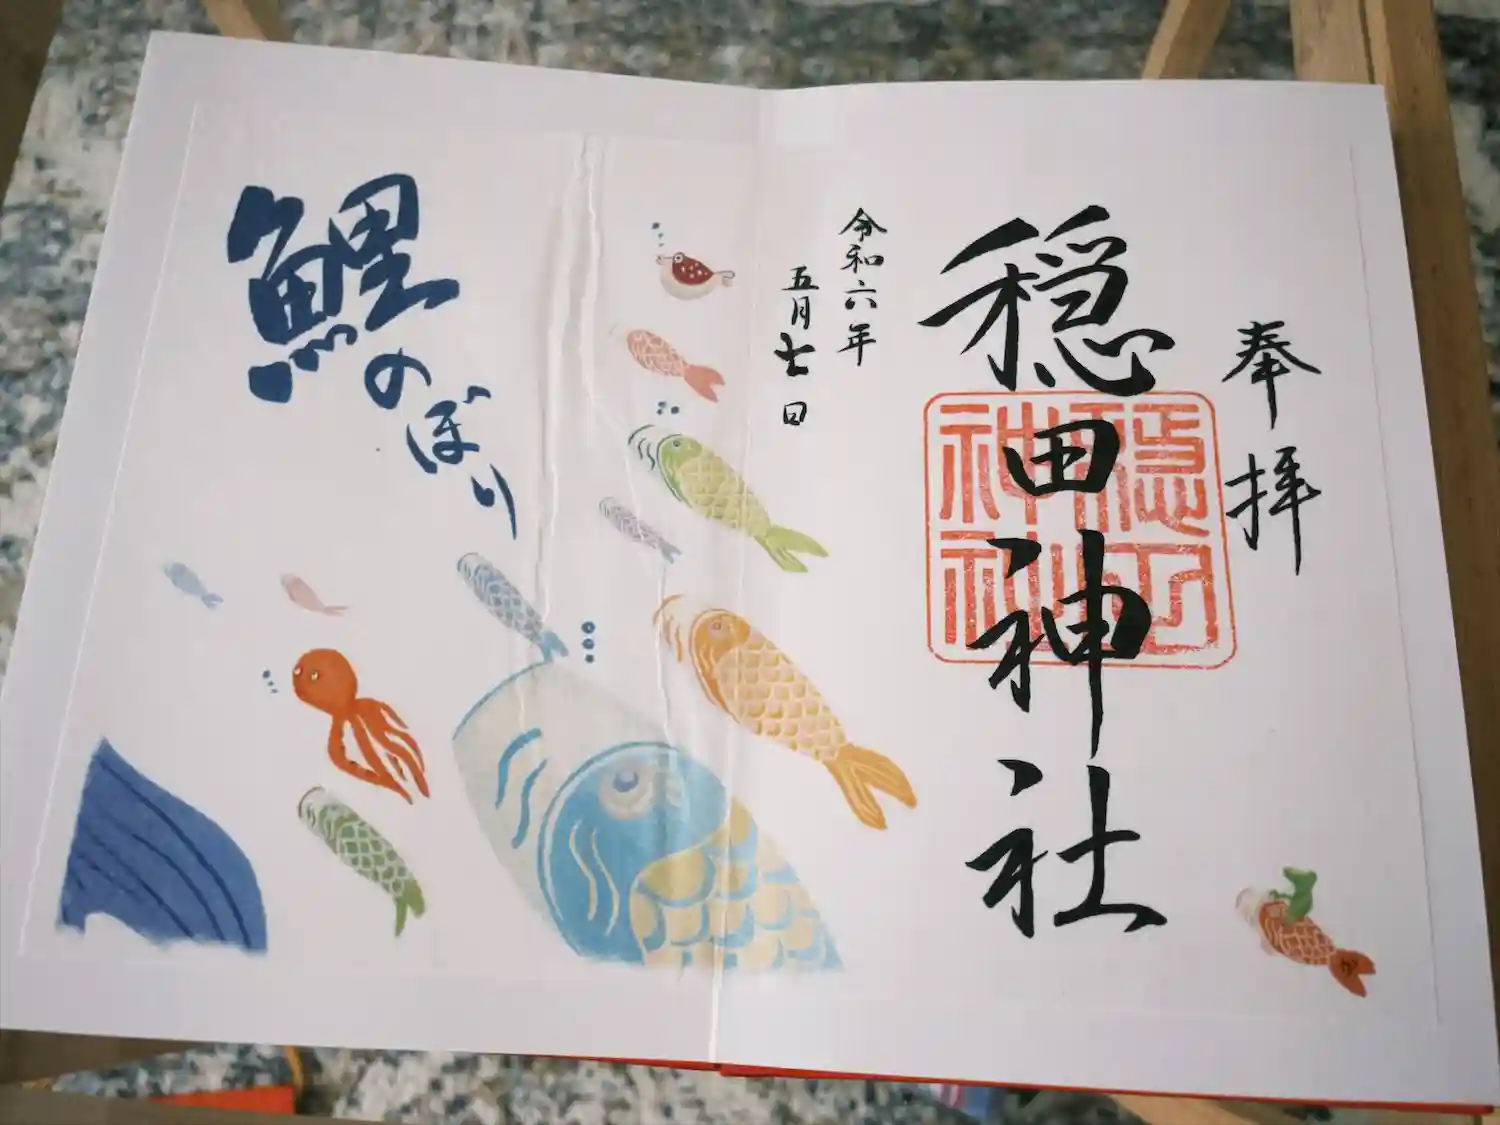 奉拝
穏田神社
穏田神社
令和六年
五月七日
鯉のぼり